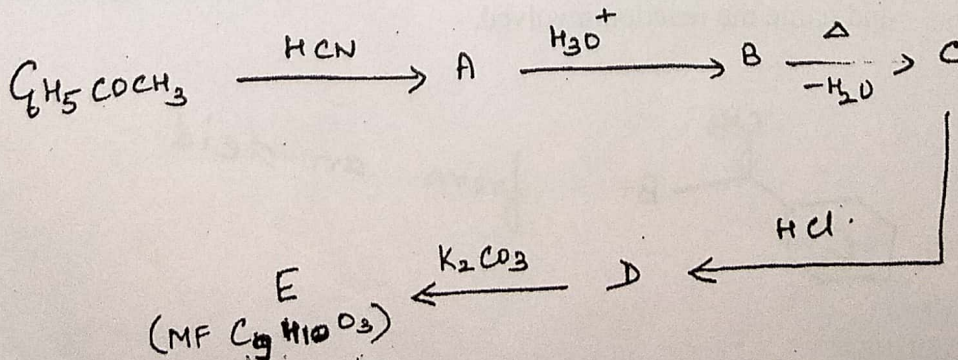 C6H5COCH3 HCN A H3O+ B Δ -H2O C
HCl.
D K2CO3 E
(MF C9H10O3)